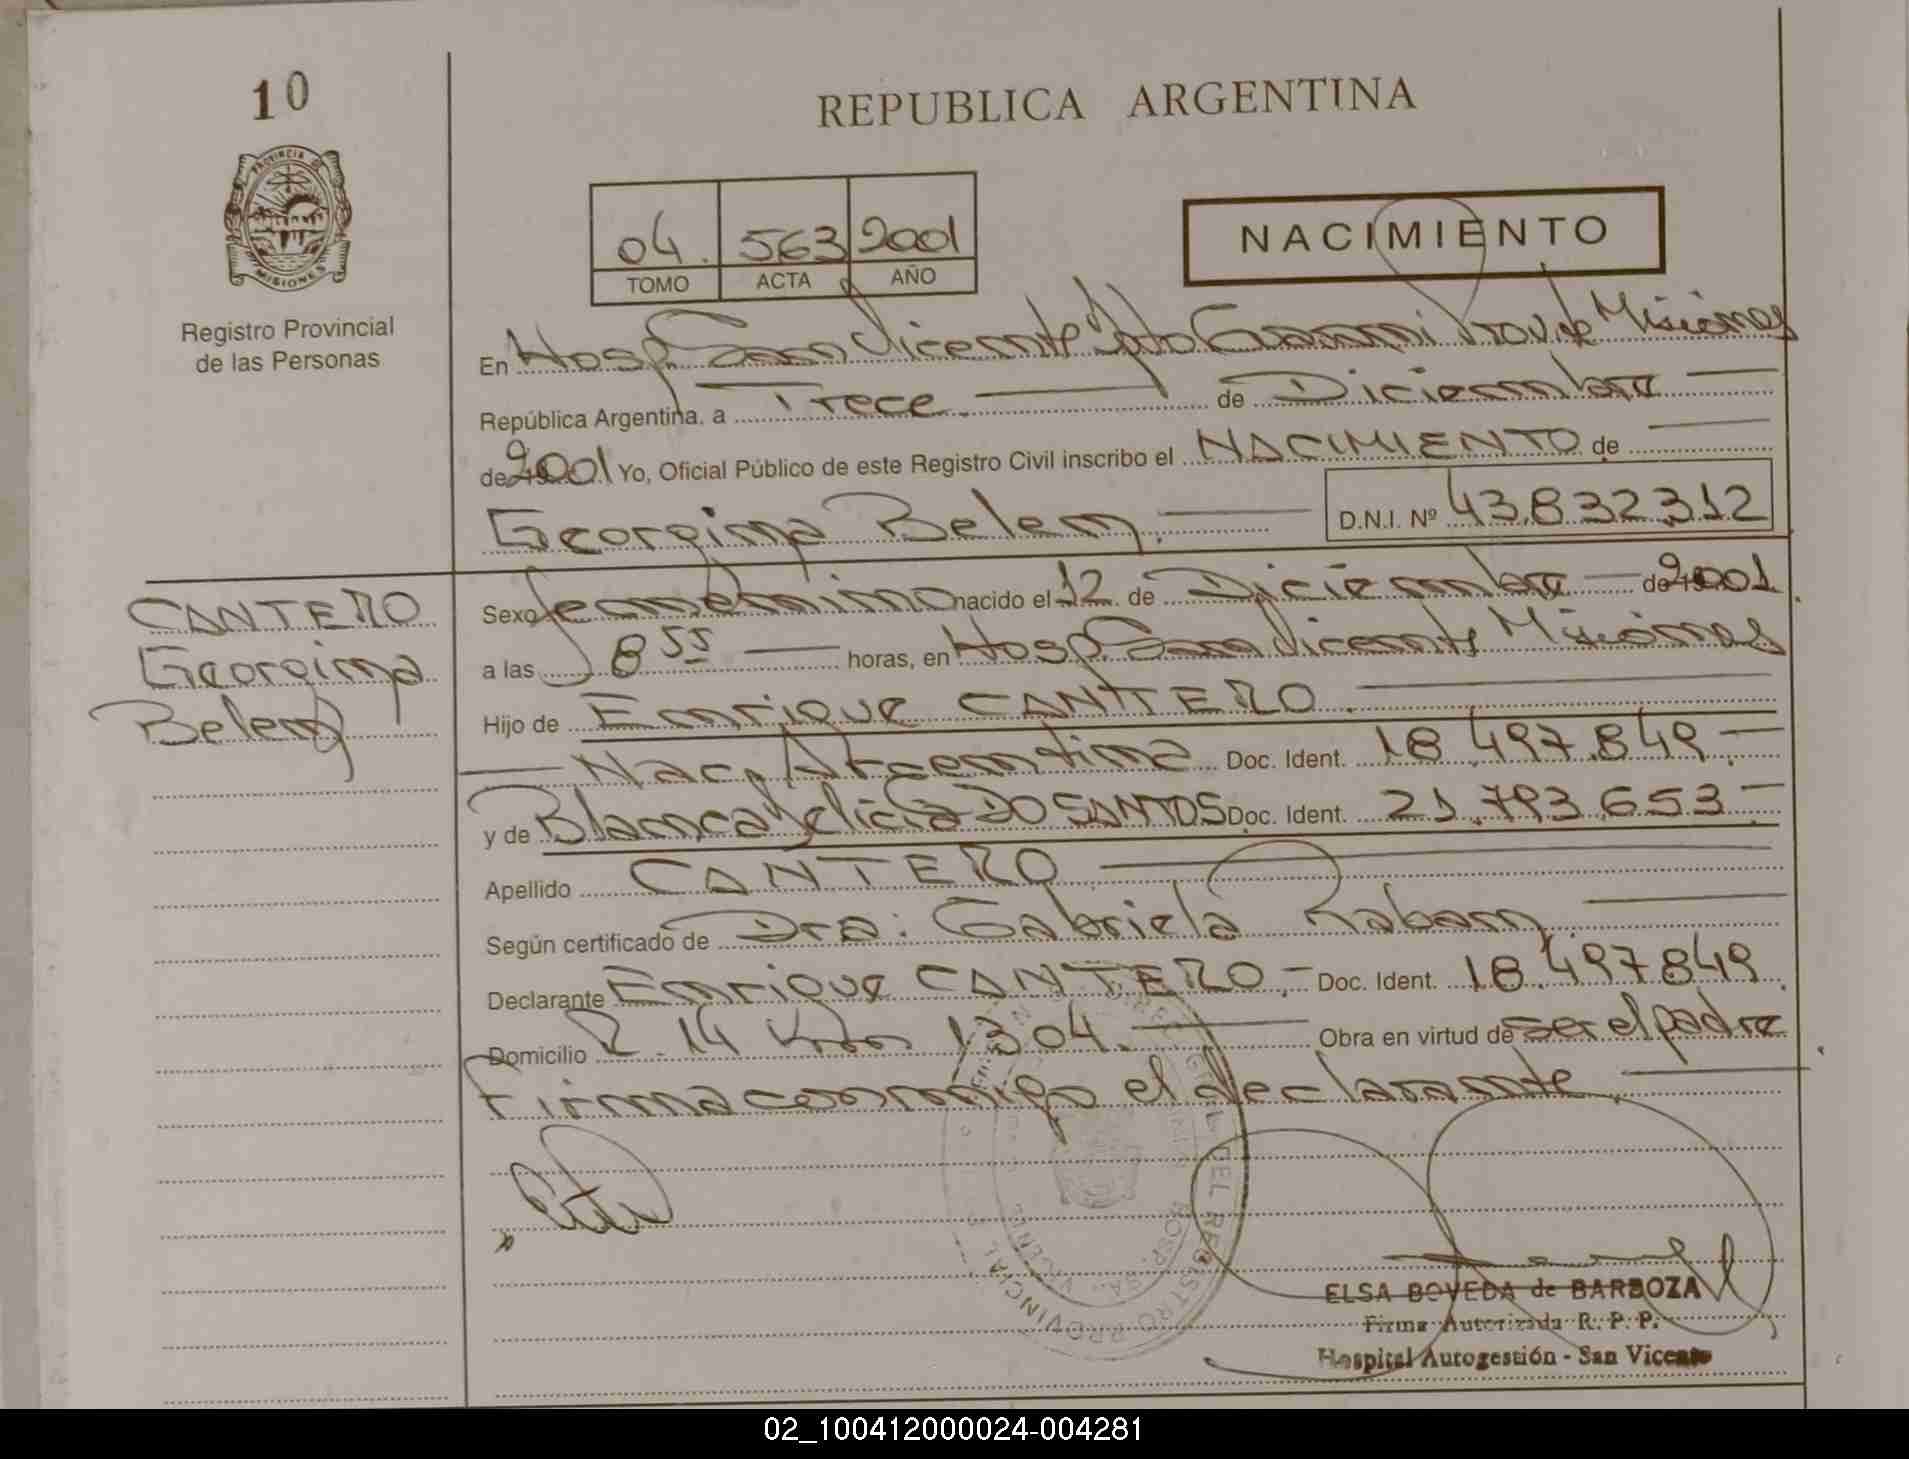 10
REPUBLICA ARGENTINA
PROVINCIA DE
MISIONES
Registro Provincial
de las Personas
04. 563 2001
TOMO ACTA AÑO
NACIMIENTO
En Hosp San Vicente Dpto Guarani Prov. de Misiones
República Argentina, a Trece. de Diciembre
de 2001 Yo, Oficial Público de este Registro Civil inscribo el NACIMIENTO de
Georgina Belen. D.N.I. Nº 43.832.312
CANTERO
Georgina
Belen
Sexo femenino nacido el 12 de Diciembre de 2001.
a las 8 55 horas, en Hosp San Vicente Misiones
Hijo de Enrique CANTERO.
Nac. Argentina Doc. Ident. 18.497.849.
y de Blanca Felicia DO SANTOS Doc. Ident. 21.793.653.
Apellido CANTERO
Según certificado de Dra: Gabriela Raban.
Declarante Enrique CANTERO. Doc. Ident. 18.497.849.
Domicilio R. 14 Km 1304. Obra en virtud de ser el padre
Firma conmigo el declarante.
DEL REGISTRO PROVINCIAL
HOSP. SAN VICENTE
ELSA BOVEDA de BARBOZA
Firma Autorizada R. P. P.
Hospital Autogestión - San Vicente
02_100412000024-004281